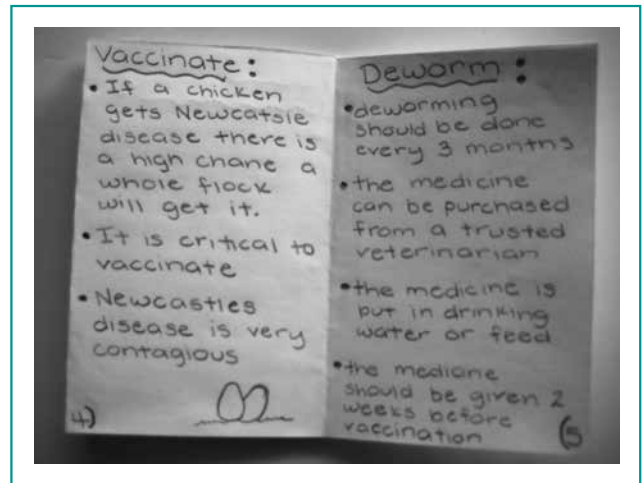 Vaccinate:
• If a chicken
gets Newcatsle
disease there is
a high chane a
whole flock
will get it.
• It is critical to
vaccinate
• Newcastles
disease is very
contagious
4)
Deworm:
• deworming
should be done
every 3 months
• the medicine
can be purchased
from a trusted
veterinarian
• the medicine is
put in drinking
water or feed
• the medicine
should be given 2
weeks before
vaccination
(5